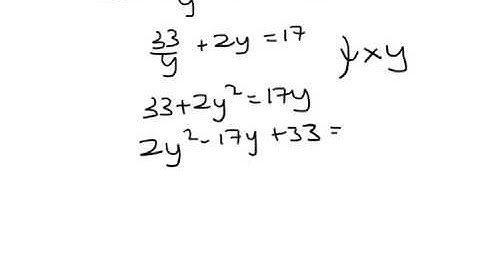 33/y + 2y = 17 } × y
33 + 2y² = 17y
2y² - 17y + 33 =